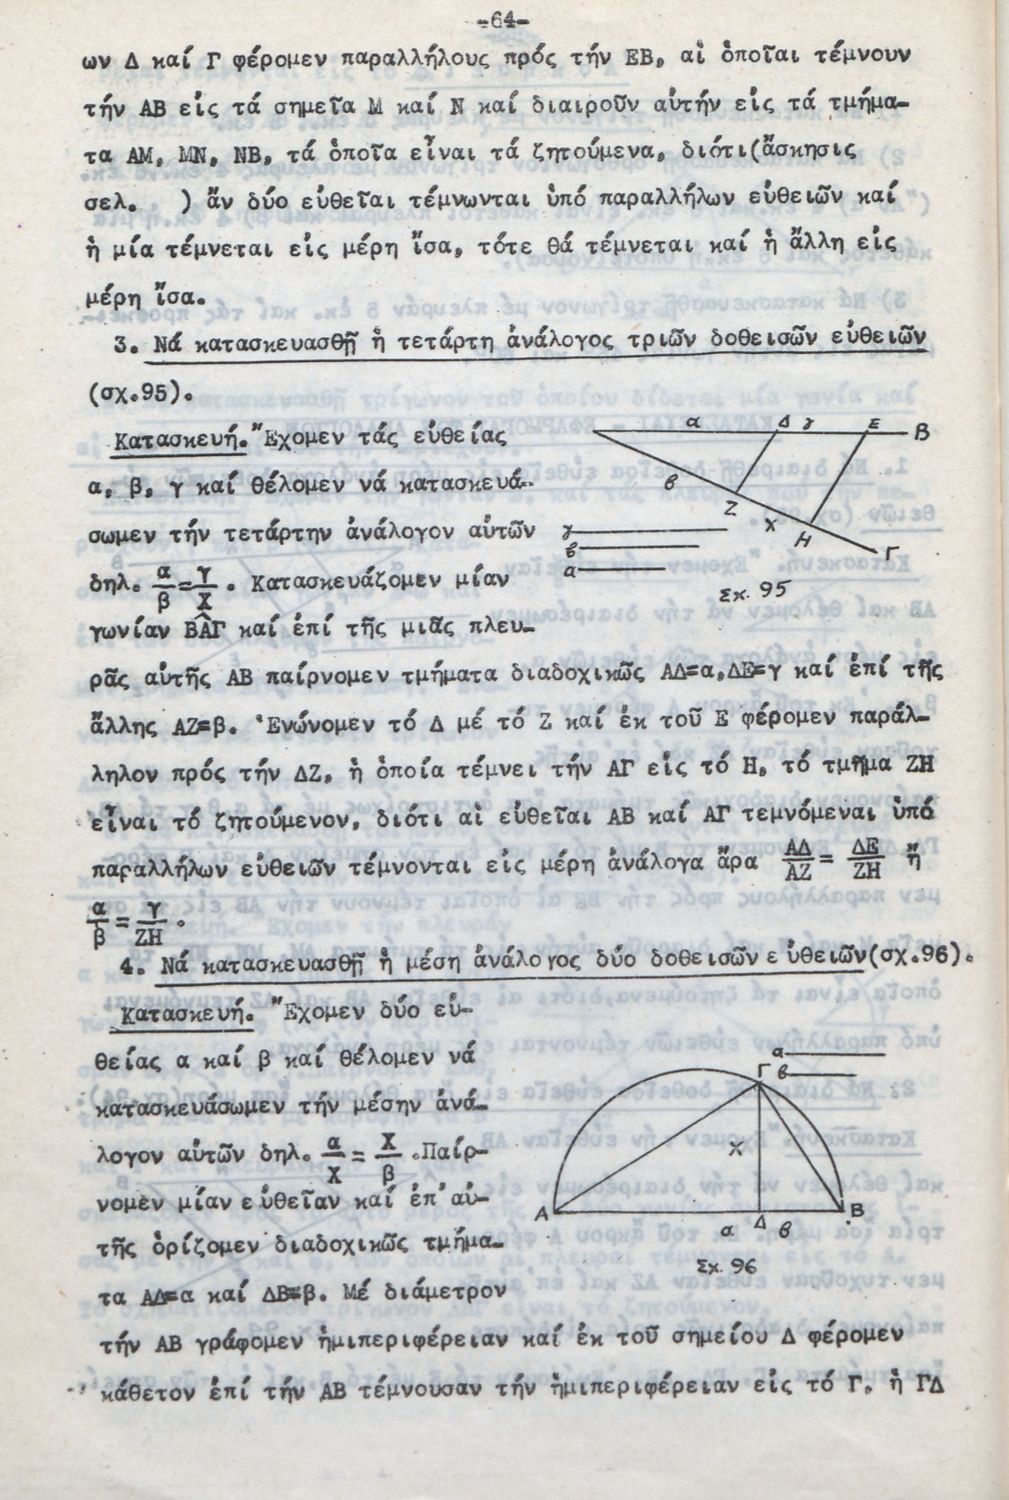 -64-
ων Δ καί Γ φέρομεν παραλλήλους πρός τήν ΕΒ, αἱ ὁποῖαι τέμνουν
τήν ΑΒ εἰς τά σημεῖα Μ καί Ν καί διαιροῦν αὐτήν εἰς τά τμήμα-
τα ΑΜ, ΜΝ, ΝΒ, τά ὁποῖα εἶναι τά ζητούμενα, διότι(ἄσκησις
σελ.    ) ἄν δύο εὐθεῖαι τέμνωνται ὑπό παραλλήλων εὐθειῶν καί
ἡ μία τέμνεται εἰς μέρη ἴσα, τότε θά τέμνεται καί ἡ ἄλλη εἰς
μέρη ἴσα.
3. Νά κατασκευασθῇ ἡ τετάρτη ἀνάλογος τριῶν δοθεισῶν εὐθειῶν
(σχ.95).
Κατασκευή. Ἔχομεν τάς εὐθείας
α, β, γ καί θέλομεν νά κατασκευά-
σωμεν τήν τετάρτην ἀνάλογον αὐτῶν
δηλ. α/β = γ/Χ . Κατασκευάζομεν μίαν
γωνίαν ΒÂΓ καί ἐπί τῆς μιᾶς πλευ-
α Δ γ Ε Β
β Ζ Χ Η Γ
γ
β
α
Σχ. 95
ρᾶς αὐτῆς ΑΒ παίρνομεν τμήματα διαδοχικῶς ΑΔ=α,ΔΕ=γ καί ἐπί τῆς
ἄλλης ΑΖ=β. Ἑνώνομεν τό Δ μέ τό Ζ καί ἐκ τοῦ Ε φέρομεν παράλ-
ληλον πρός τήν ΔΖ, ἡ ὁποία τέμνει τήν ΑΓ εἰς τό Η, τό τμῆμα ΖΗ
εἶναι τό ζητούμενον, διότι αἱ εὐθεῖαι ΑΒ καί ΑΓ τεμνόμεναι ὑπό
παραλλήλων εὐθειῶν τέμνονται εἰς μέρη ἀνάλογα ἄρα ΑΔ/ΑΖ = ΔΕ/ΖΗ ἤ
α/β = γ/ΖΗ .
4. Νά κατασκευασθῇ ἡ μέση ἀνάλογος δύο δοθεισῶν εὐθειῶν(σχ.96).
Κατασκευή. Ἔχομεν δύο εὐ-
θείας α καί β καί θέλομεν νά
κατασκευάσωμεν τήν μέσην ἀνά-
λογον αὐτῶν δηλ. α/Χ = Χ/β .Παίρ-
νομεν μίαν εὐθεῖαν καί ἐπ' αὐ-
τῆς ὁρίζομεν διαδοχικῶς τμήμα-
τα ΑΔ=α καί ΔΒ=β. Μέ διάμετρον
α
Γ β
Χ
Α α Δ β Β
Σχ. 96
τήν ΑΒ γράφομεν ἡμιπεριφέρειαν καί ἐκ τοῦ σημείου Δ φέρομεν
κάθετον ἐπί τήν ΑΒ τέμνουσαν τήν ἡμιπεριφέρειαν εἰς τό Γ. ἡ ΓΔ